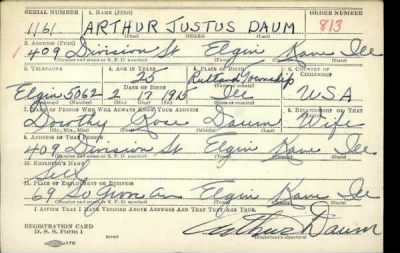 SERIAL NUMBER 1. NAME (Print) ORDER NUMBER
1161 ARTHUR JUSTUS DAUM 813
(First) (Middle) (Last)
2. ADDRESS (Print)
409 Division St Elgin Kane Ill
(Number and street or R. F. D. number) (Town) (County) (State)
3. TELEPHONE 4. AGE IN YEARS 5. PLACE OF BIRTH 6. COUNTRY OF CITIZENSHIP
25 Rutland Township
DATE OF BIRTH
Elgin 5062 2 17 1915 Ill USA
7. NAME OF PERSON WHO WILL ALWAYS KNOW YOUR ADDRESS 8. RELATIONSHIP OF THAT PERSON
Dorothy Rose Daum Wife
(Mr., Mrs., Miss) (First) (Middle) (Last)
9. ADDRESS OF THAT PERSON
409 Division St Elgin Kane Ill
(Number and street or R. F. D. number) (Town) (County) (State)
10. EMPLOYER'S NAME
Self
11. PLACE OF EMPLOYMENT OR BUSINESS
69 So Grove Av Elgin Kane Ill
(Number and street or R. F. D. number) (Town) (County) (State)
I AFFIRM THAT I HAVE VERIFIED ABOVE ANSWERS AND THAT THEY ARE TRUE.
REGISTRATION CARD
D. S. S. Form 1
Arthur Daum
(Registrant's signature)